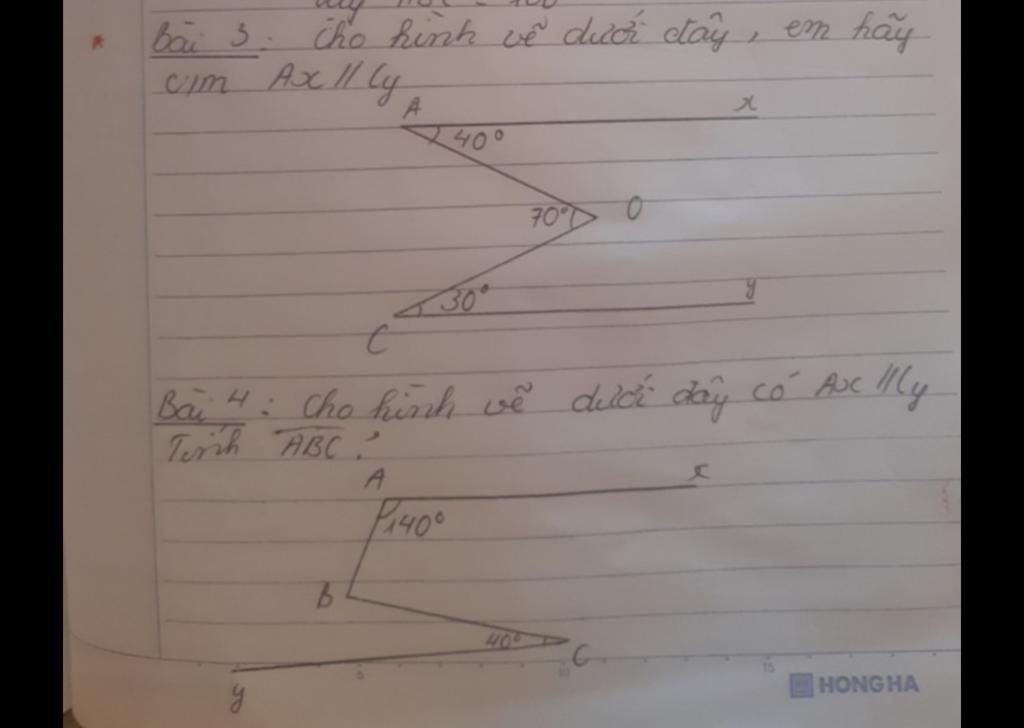 Bài 3: Cho hình vẽ dưới đây, em hãy
c/m Ax // Cy
A x
40°
70° O
30° y
C
Bài 4: Cho hình vẽ dưới đây có Ax // Cy
Tính ABC?
A x
140°
B
40° C
y
5 10 15
HONG HA